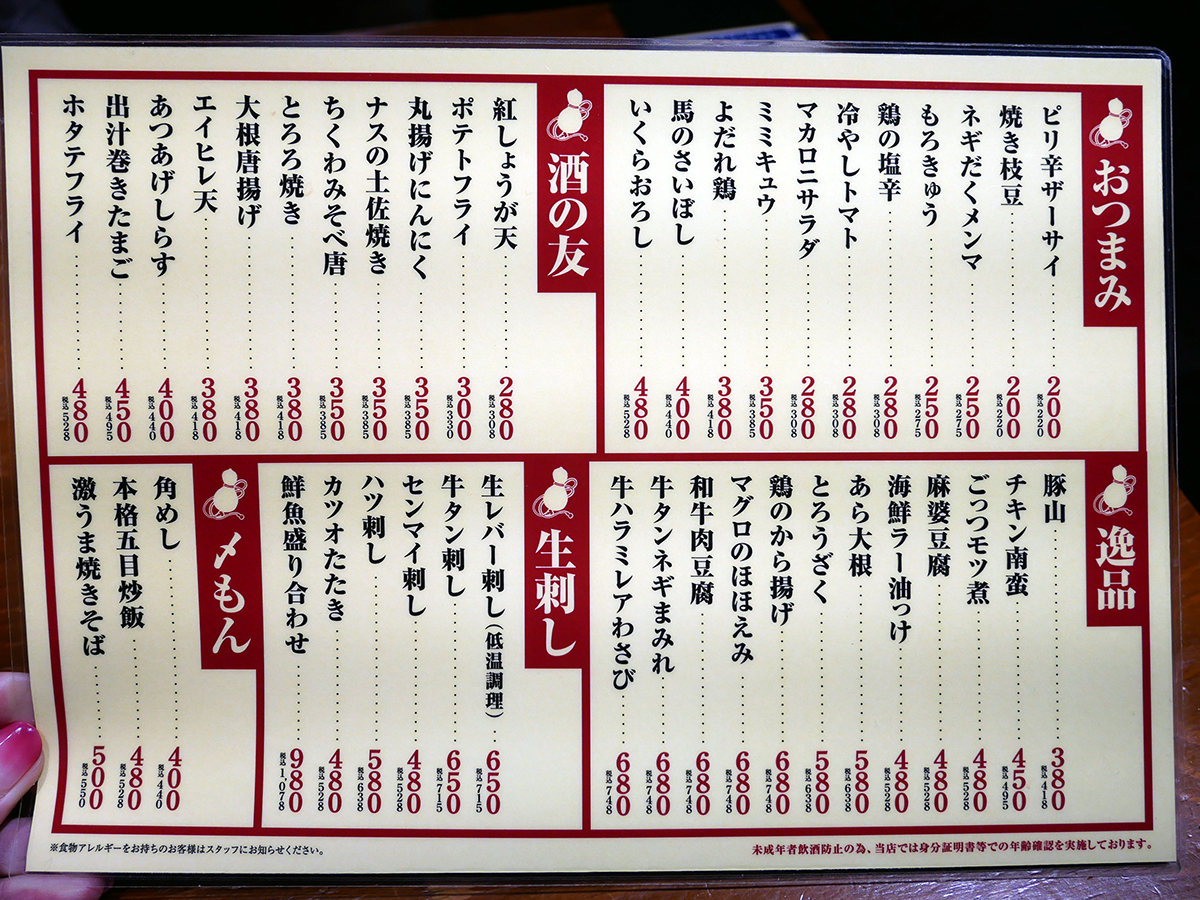 おつまみ
ピリ辛ザーサイ 200 税込220
焼き枝豆 200 税込220
ネギだくメンマ 250 税込275
もろきゅう 250 税込275
鶏の塩辛 280 税込308
冷やしトマト 280 税込308
マカロニサラダ 280 税込308
ミミキュウ 350 税込385
よだれ鶏 380 税込418
馬のさいぼし 400 税込440
いくらおろし 480 税込528
酒の友
紅しょうが天 280 税込308
ポテトフライ 300 税込330
丸揚げにんにく 350 税込385
ナスの土佐焼き 350 税込385
ちくわみそべ唐 350 税込385
とろろ焼き 380 税込418
大根唐揚げ 380 税込418
エイヒレ天 380 税込418
あつあげしらす 400 税込440
出汁巻きたまご 450 税込495
ホタテフライ 480 税込528
逸品
豚山 380 税込418
チキン南蛮 450 税込495
ごっつモツ煮 480 税込528
麻婆豆腐 480 税込528
海鮮ラー油っけ 480 税込528
あら大根 580 税込638
とろうざく 580 税込638
鶏のから揚げ 680 税込748
マグロのほほえみ 680 税込748
和牛肉豆腐 680 税込748
牛タンネギまみれ 680 税込748
牛ハラミレアわさび 680 税込748
生刺し
生レバー刺し(低温調理) 650 税込715
牛タン刺し 650 税込715
センマイ刺し 480 税込528
ハツ刺し 580 税込638
カツオたたき 480 税込528
鮮魚盛り合わせ 980 税込1,078
〆もん
角めし 400 税込440
本格五目炒飯 480 税込528
激うま焼きそば 500 税込550
※食物アレルギーをお持ちのお客様はスタッフにお知らせください。
未成年者飲酒防止の為、当店では身分証明書等での年齢確認を実施しております。